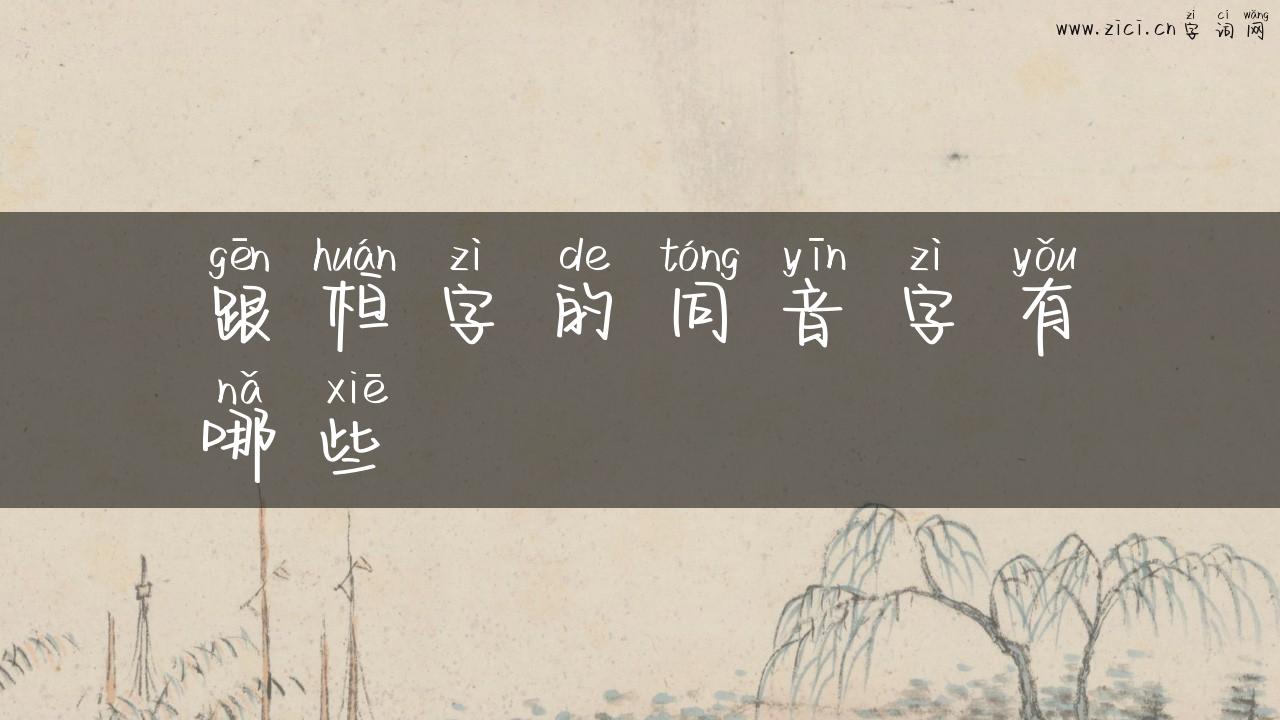 zì cí wǎng
www.zici.cn 字词网
gēn huán zì de tóng yīn zì yǒu
跟桓字的同音字有
nǎ xiē
哪些